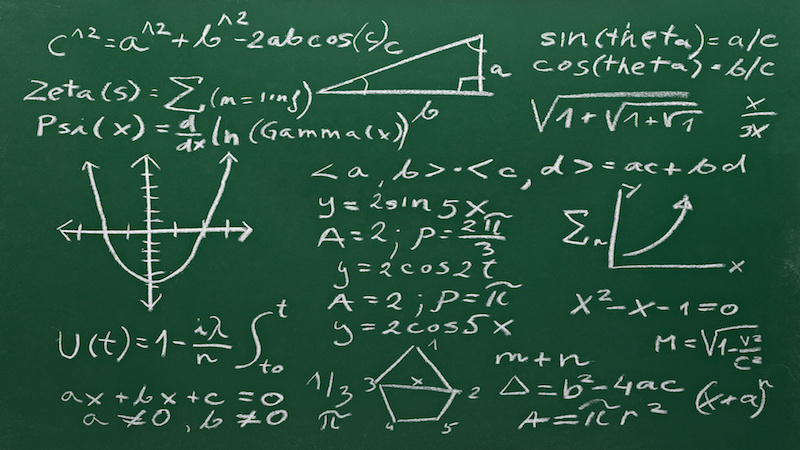 c^2=a^2+b^2-2abcos(c)
c
a
b
sin(theta)=a/c
cos(theta)=b/c
Zeta(s)=∑(m=1inf)
Psi(x)=d/dx ln(Gamma(x))
√1+√1+√1
x/3x
<a,b>·<c,d>=ac+bd
y=2sin5x
A=2;P=2π/3
y=2cos2t
A=2;P=π
y=2cos5x
∑n
y
x
x²-x-1=0
U(t)=1-iλ/n ∫t0 t
M=√1-v²/c²
ax+bx+c=0
a≠0,b≠0
1/3
π
1
3
x
2
4
5
m+n
Δ=b²-4ac
A=πr²
(x+a)ⁿ